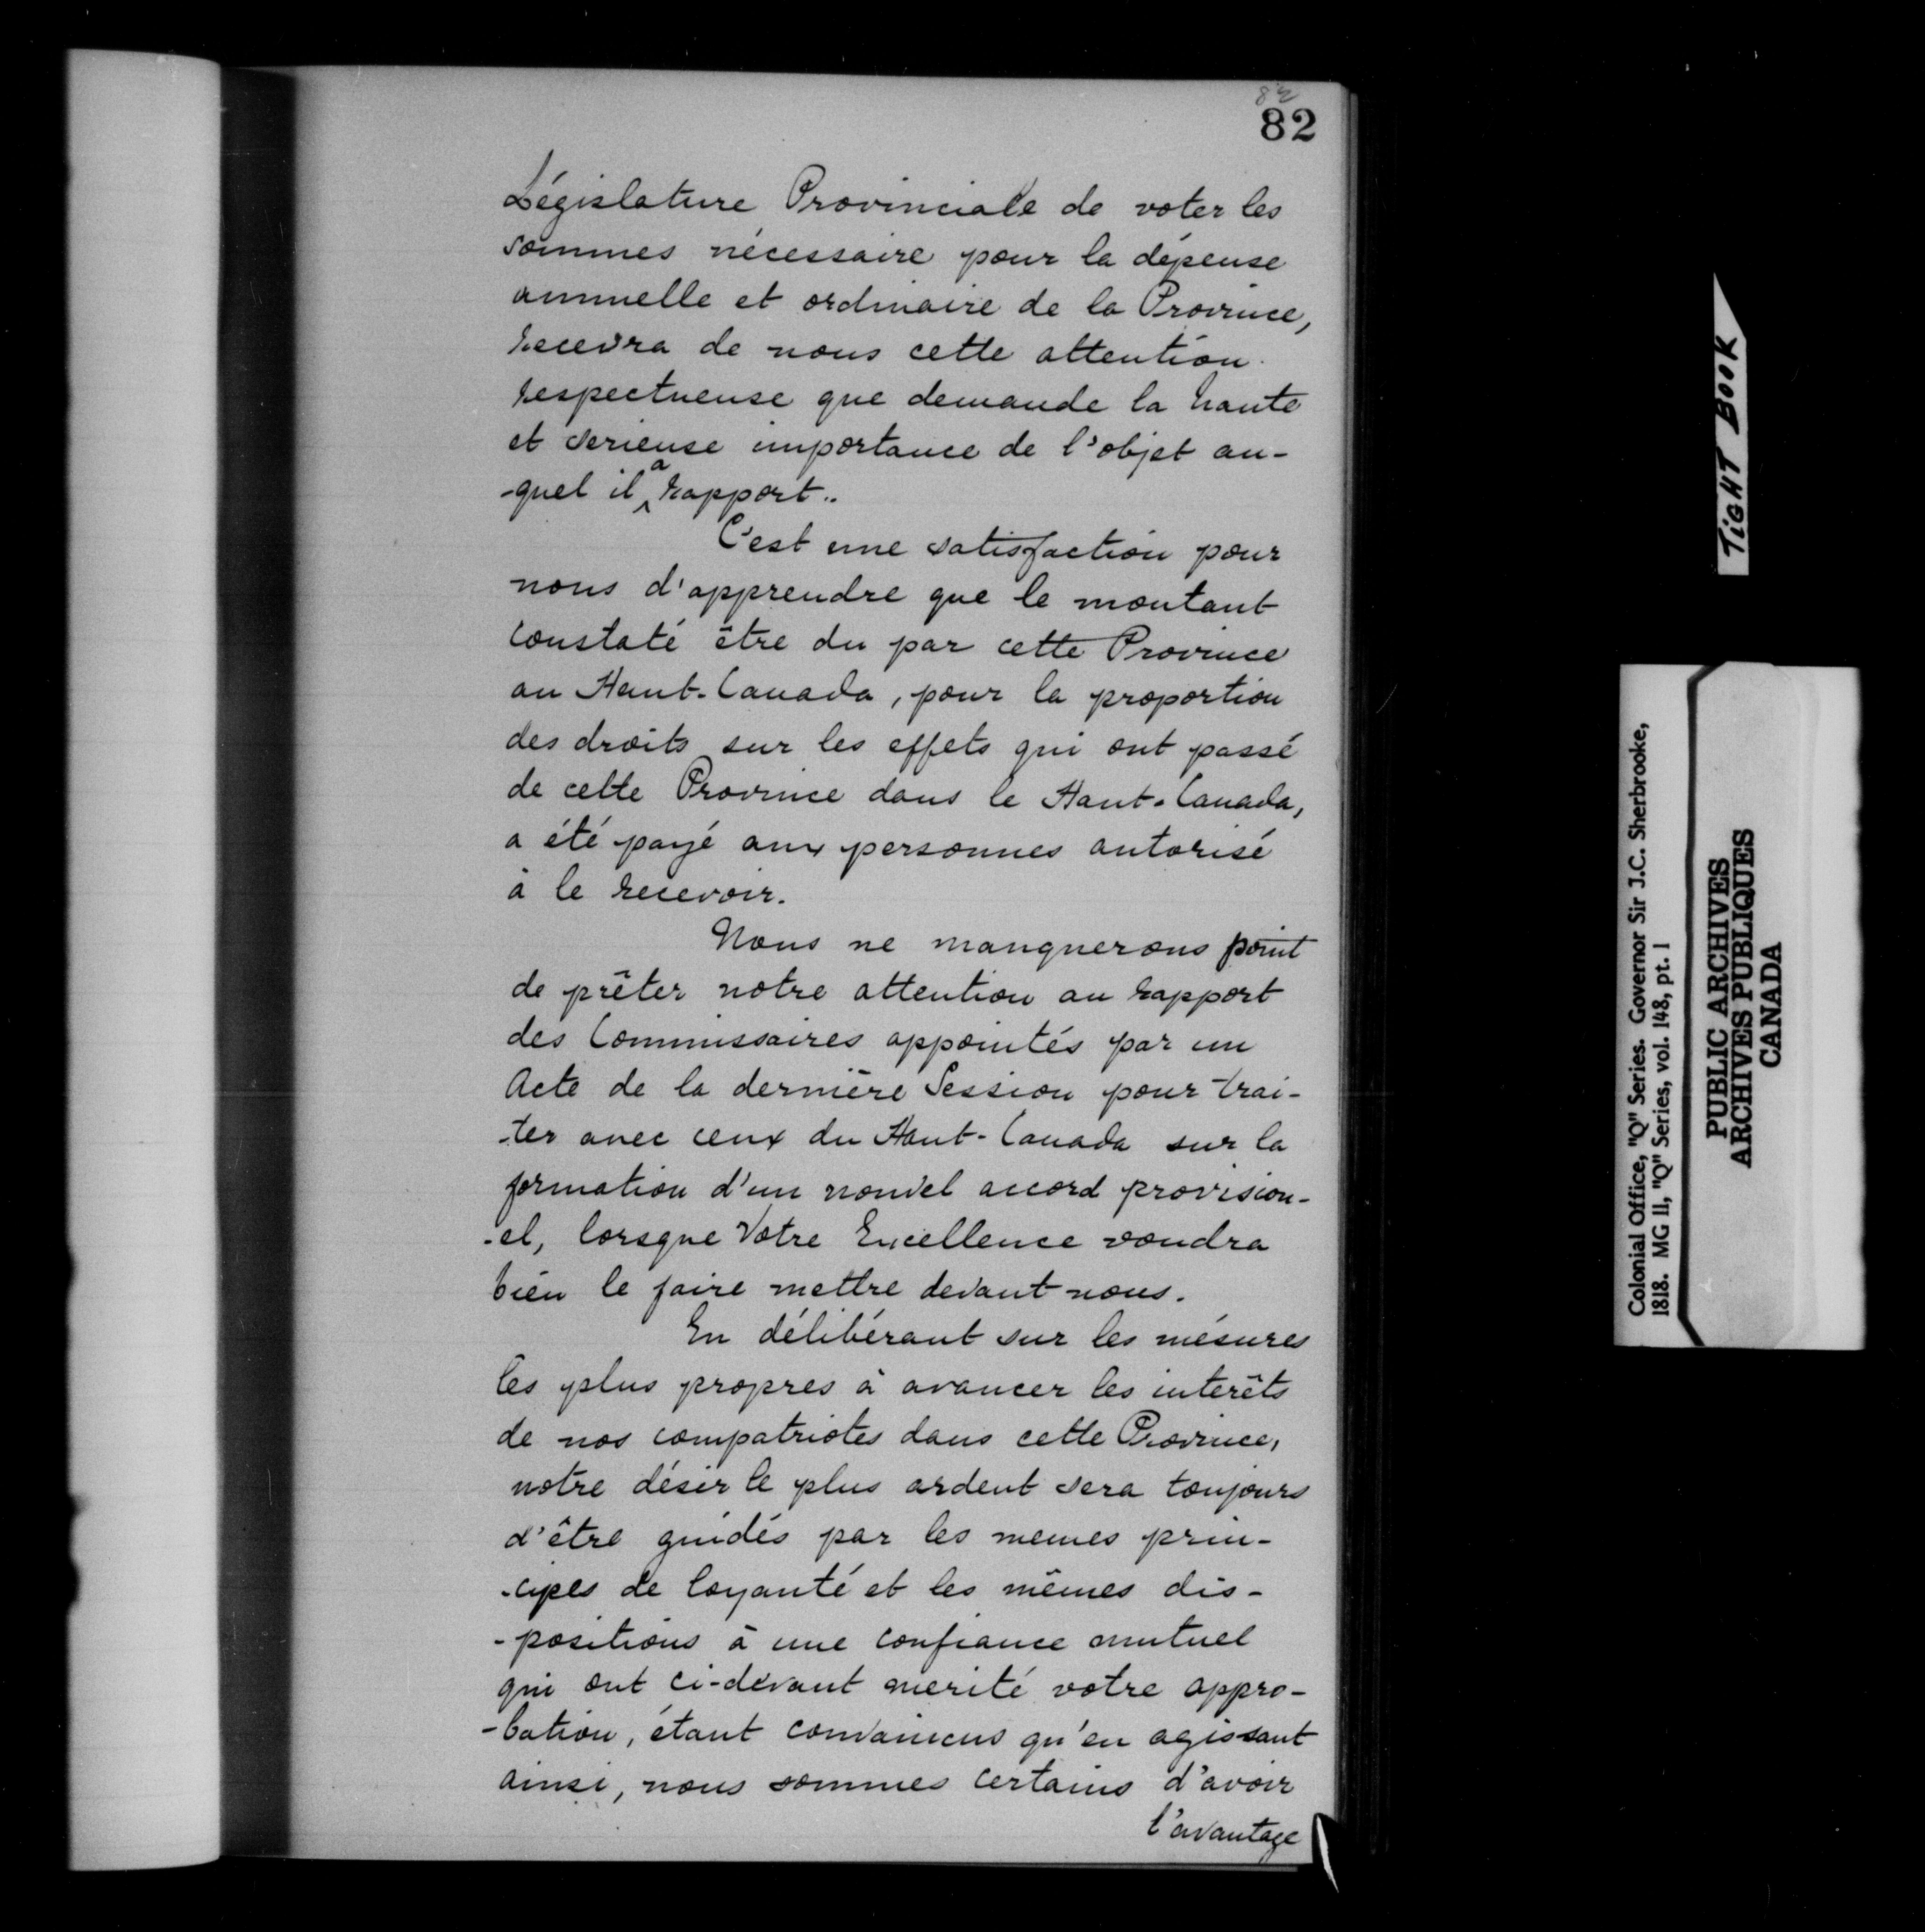 82
82
Législature Provinciale de voter les
sommes nécessaire pour la dépense
annuelle et ordinaire de la Province,
recevra de nous cette attention
respectueuse que demande la haute
et serieuse importance de l'objet au-
-quel il a rapport.
C'est une satisfaction pour
nous d'apprendre que le montant
constaté être du par cette Province
au Haut-Canada, pour la proportion
des droits sur les effets qui ont passé
de cette Province dans le Haut-Canada,
a été payé aux personnes autorisé
à le recevoir.
Nous ne manquerons point
de prêter notre attention au rapport
des Commissaires appointés par un
Acte de la dernière Session pour trai-
-ter avec ceux du Haut-Canada sur la
formation d'un nouvel accord provision-
-el, lorsque Votre Excellence voudra
bien le faire mettre devant nous.
En délibérant sur les mésures
les plus propres à avancer les interêts
de nos compatriotes dans cette Province,
notre désir le plus ardent sera toujours
d'être guidés par les memes prin-
-cipes de loyauté et les mêmes dis-
-positions à une confiance mutuel
qui ont ci-dévant merité votre appro-
-bation, étant convaincus qu'en agissant
ainsi, nous sommes certains d'avoir
l'avantage
TIGHT BOOK
Colonial Office, "Q" Series. Governor Sir J.C. Sherbrooke,
1818. MG 11, "Q" Series, vol. 148, pt. 1
PUBLIC ARCHIVES
ARCHIVES PUBLIQUES
CANADA